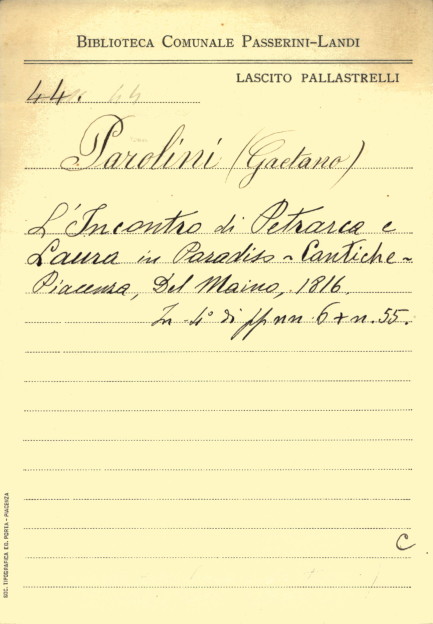 BIBLIOTECA COMUNALE PASSERINI-LANDI
LASCITO PALLASTRELLI
44.
Parolini (Gaetano)
L'Incontro di Petrarca e
Laura in Paradiso - Cantiche -
Piacenza, Del Maino, 1816.
In 4° di pp nn 6 + n. 55.
C
SOC. TIPOGRAFICA ED. PORTA - PIACENZA